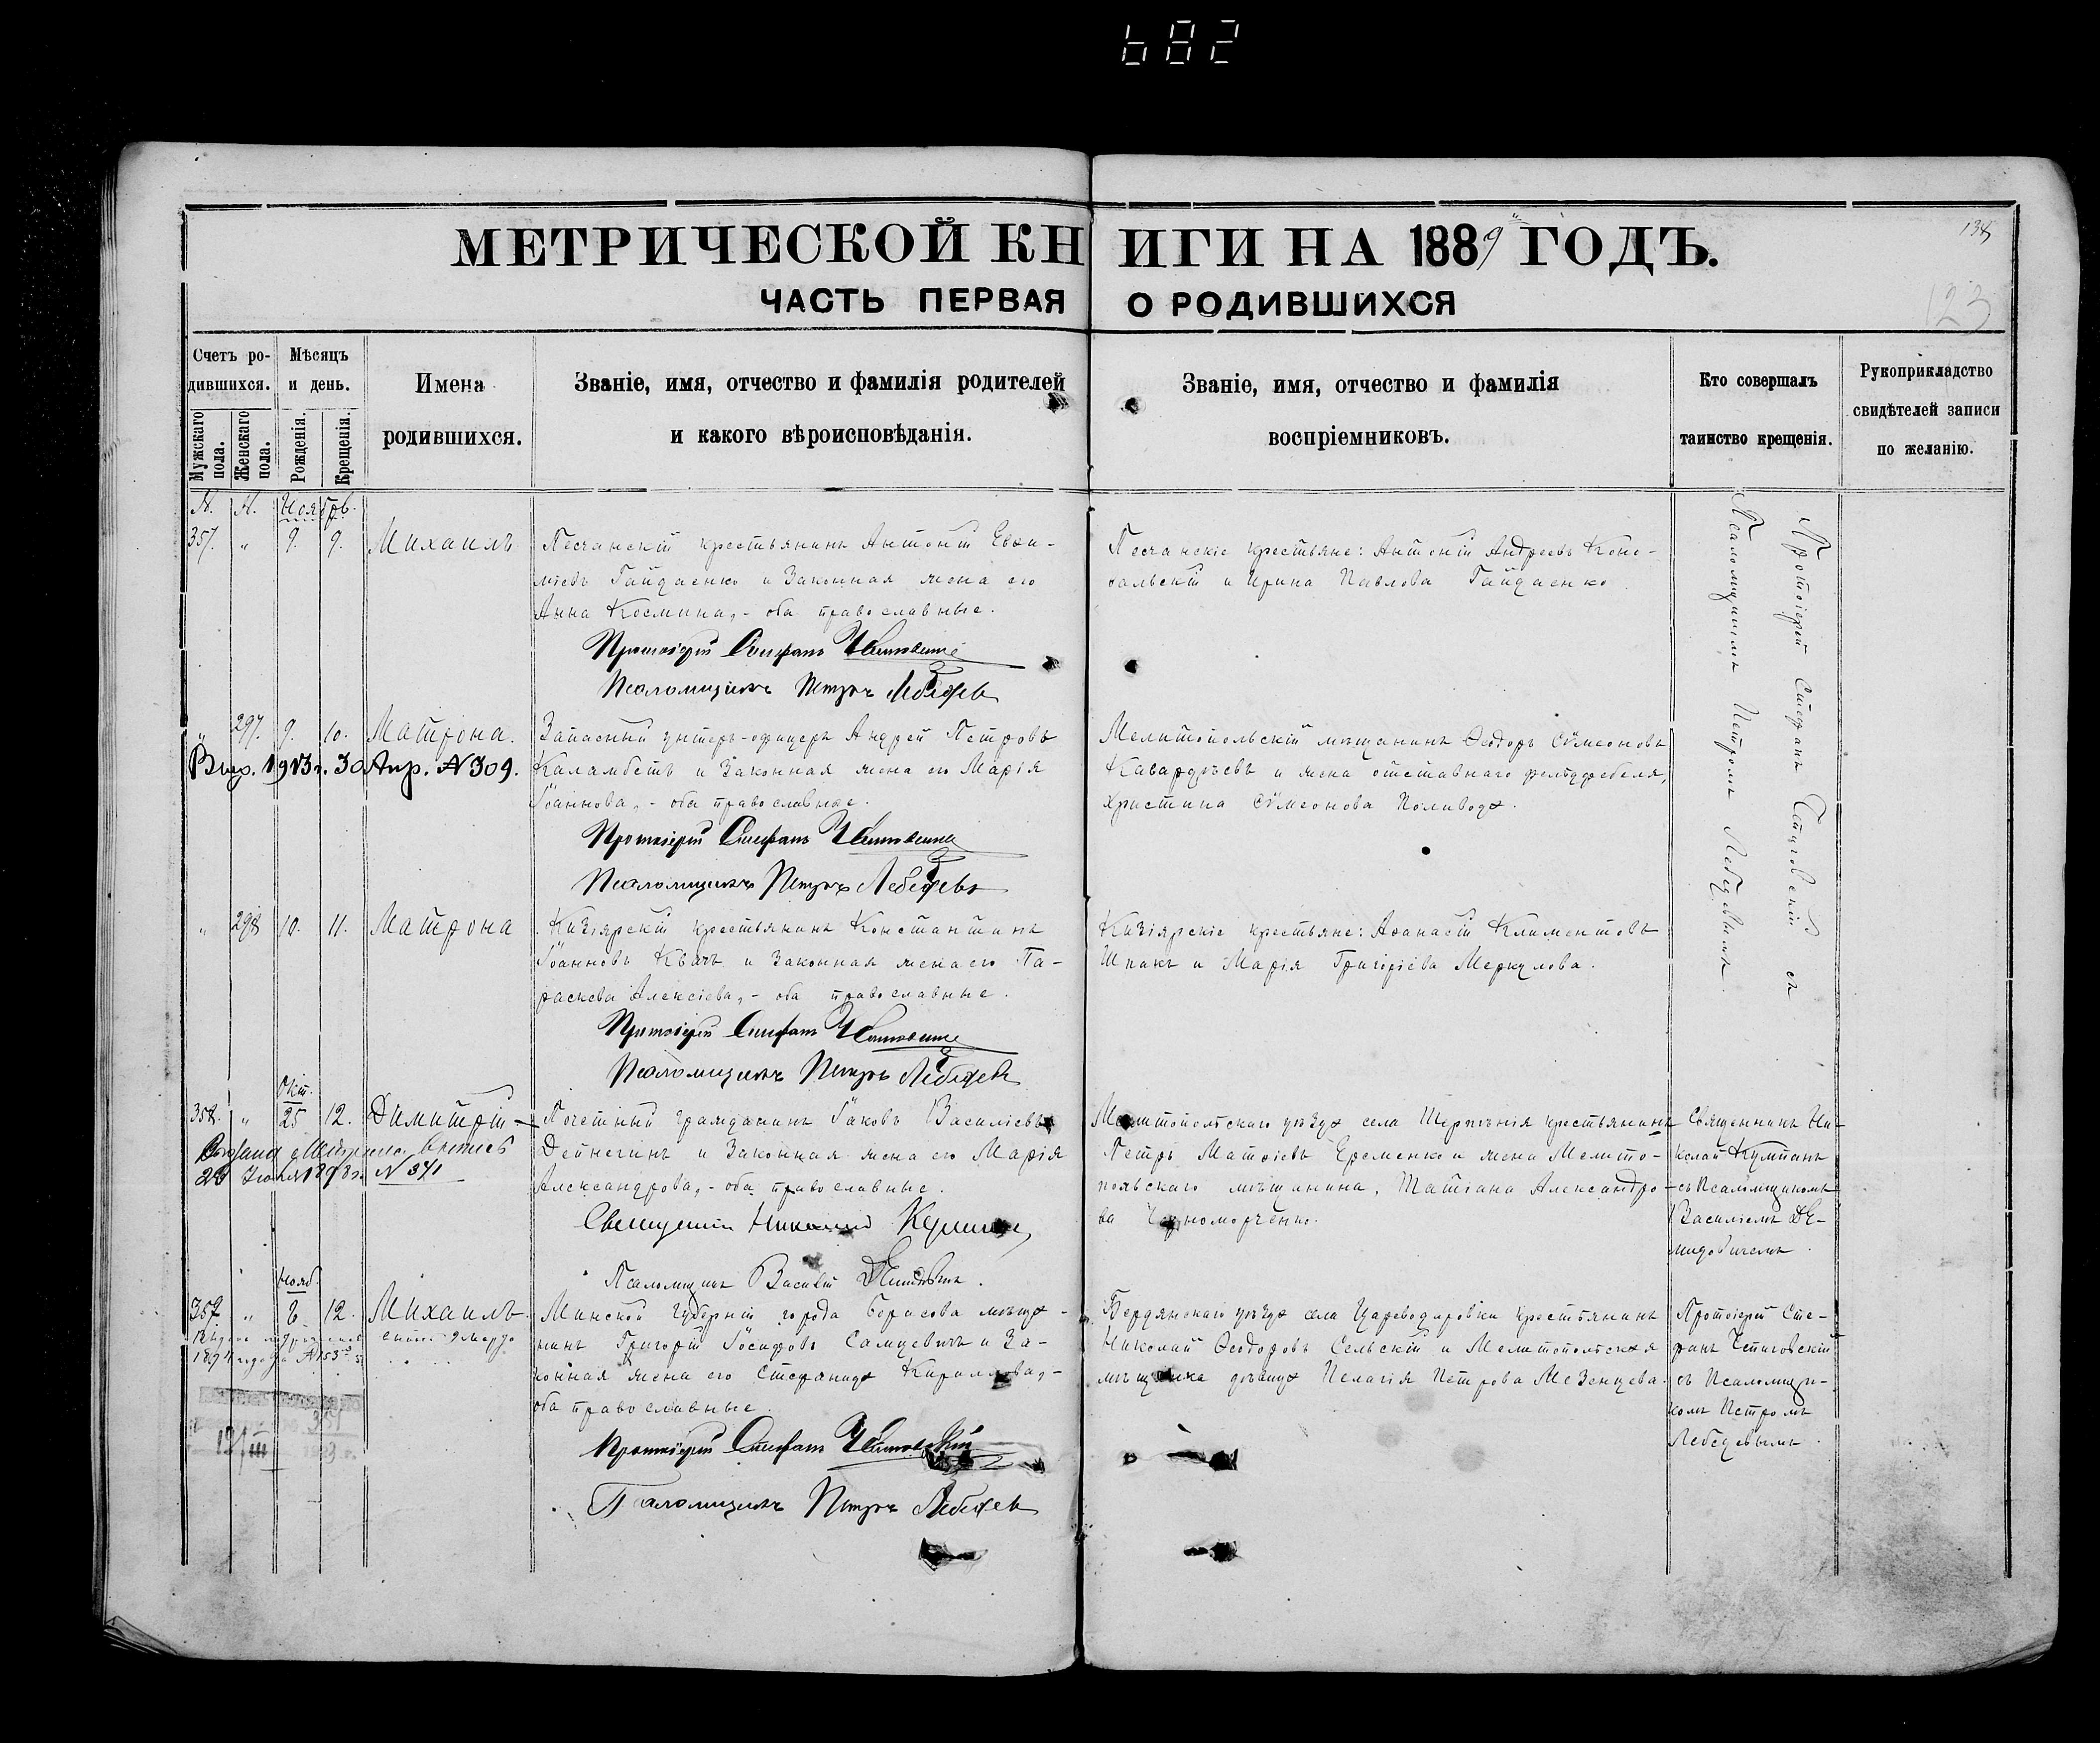 682
МЕТРИЧЕСКОЙ КНИГИ НА 1889 ГОДЪ.
138
ЧАСТЬ ПЕРВАЯ О РОДИВШИХСЯ
123
Счетъ родившихся.
Мужскаго пола.
Женскаго пола.
Мѣсяцъ и день.
Рожденія.
Крещенія.
Имена
родившихся.
Званіе, имя, отчество и фамилія родителей
и какого вѣроисповѣданія.
Званіе, имя, отчество и фамилія
воспріемниковъ.
Кто совершалъ
таинство крещенія.
Рукоприкладство
свидѣтелей записи
по желанію.
М. Ж. Ноябр.
357. " 9. 9. Михаилъ
Песчанскій крестьянинъ Антоній Евѳи-
міевъ Гайдаенко и законная жена его
Анна Космина, - оба православные.
Протоіерей Стефанъ
Псаломщикъ Петръ Лебедевъ
Песчанскіе крестьяне: Антоній Андреевъ Коно-
вальскій и Ирина Павлова Гайдаенко.
Протоіерей Стефанъ съ
Псаломщикомъ Петромъ Лебедевымъ
" 297. 9. 10. Матрона.
Выд. 1913 г. 30 Апр. № 309.
Запасный унтеръ-офицеръ Андрей Петровъ
Каламбетъ и законная жена его Марія
Іоаннова, - оба православные.
Протоіерей Стефанъ
Псаломщикъ Петръ Лебедевъ
Мелитопольскій мѣщанинъ Ѳеодоръ Сѵмеоновъ
и жена отставнаго фельдфебеля,
Христина Сѵмеонова Поливода.
" 298 10. 11. Матрона
Кизіярскій крестьянинъ Константинъ
Іоанновъ Квачъ и законная жена его Па-
раскева Алексіева, - оба православные.
Протоіерей Стефанъ
Псаломщикъ Петръ Лебедевъ
Кизіярскіе крестьяне: Аѳанасій Климентовъ
Шпакъ и Марія Григоріева Меркулова.
Окт.
358. " 25 12. Димитрій
28 Іюля 1898 г. № 341
Почетный гражданинъ Іаковъ Василіевъ
Дейнегинъ и законная жена его Марія
Александрова, - оба православные.
Священникъ Николай
Псаломщикъ Василій
Мелитопольскаго уѣзда села Терпѣнія крестьянинъ
Петръ Матѳіевъ Еременко и жена Мелито-
польскаго мѣщанина, Татіана Александро-
ва Черноморченко.
Священникъ Ни-
колай
съ Псаломщикомъ
Василіемъ Де-
мидовичемъ.
Нояб.
" 12. Михаилъ
Минской губерніи города Борисова мѣща-
нинъ Григорій Іосифовъ и за-
конная жена его Стефанида Кириллова, -
оба православные.
Протоіерей Стефанъ
Псаломщикъ Петръ Лебедевъ
Бердянскаго уѣзда села Цареводаровки крестьянинъ
Николай Ѳеодоровъ Сельскій и Мелитопольская
мѣщанка дѣвица Пелагія Петрова Мезенцева.
Протоіерей Сте-
фанъ
съ Псаломщи-
комъ Петромъ
Лебедевымъ.